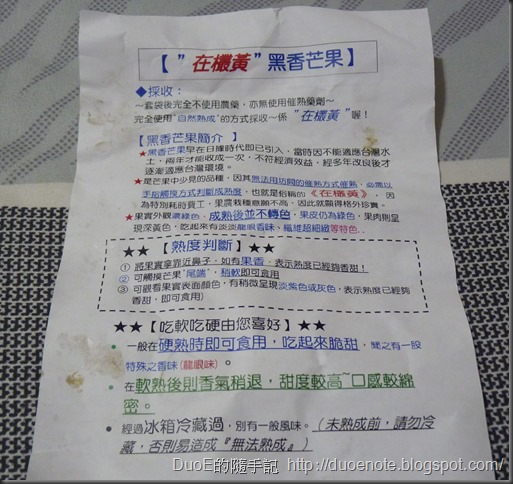 【 " 在欉黃 " 黑香芒果】
◆採收：
～套袋後完全不使用農藥，亦無使用催熟藥劑～
完全使用"自然熟成"的方式採收～係 "在欉黃" 喔！
【黑香芒果簡介 】
★黑香芒果早在日據時代即已引入，當時因不能適應台灣水
土，兩年才能收成一次，不符經濟效益，經多年改良後才
逐漸適應台灣環境。
★是芒果中少見的品種，因其無法用坊間的催熟方式催熟，必需以
手指觸摸方式判斷成熟度，也就是俗稱的《在欉黃》。因
為特別耗時費工，果農栽種意願不高，因此就顯得格外珍貴。
★果實外觀濃綠色，成熟後並不轉色，果皮仍為綠色，果肉則呈
現深黃色，吃起來有淡淡龍眼香味、纖維超細緻等特色..
★★【熟度判斷】★★
① 將果實拿靠近鼻子，如有果香，表示熟度已經夠香甜！
② 可觸摸芒果"尾端"，稍軟即可食用
③ 可觀看果實表面顏色，有稍微呈現淡紫色或灰色，表示熟度已經夠
香甜，即可食用)
★★【吃軟吃硬由您喜好】★★
• 一般在硬熟時即可食用，吃起來脆甜，聞之有一股
特殊之香味(龍眼味)。
• 在軟熟後則香氣稍退，甜度較高~口感較綿
密。
• 經過冰箱冷藏過，別有一般風味。（未熟成前，請勿冷
藏，否則易造成『無法熟成』）
DuoE的隨手記 http://duoenote.blogspot.com/